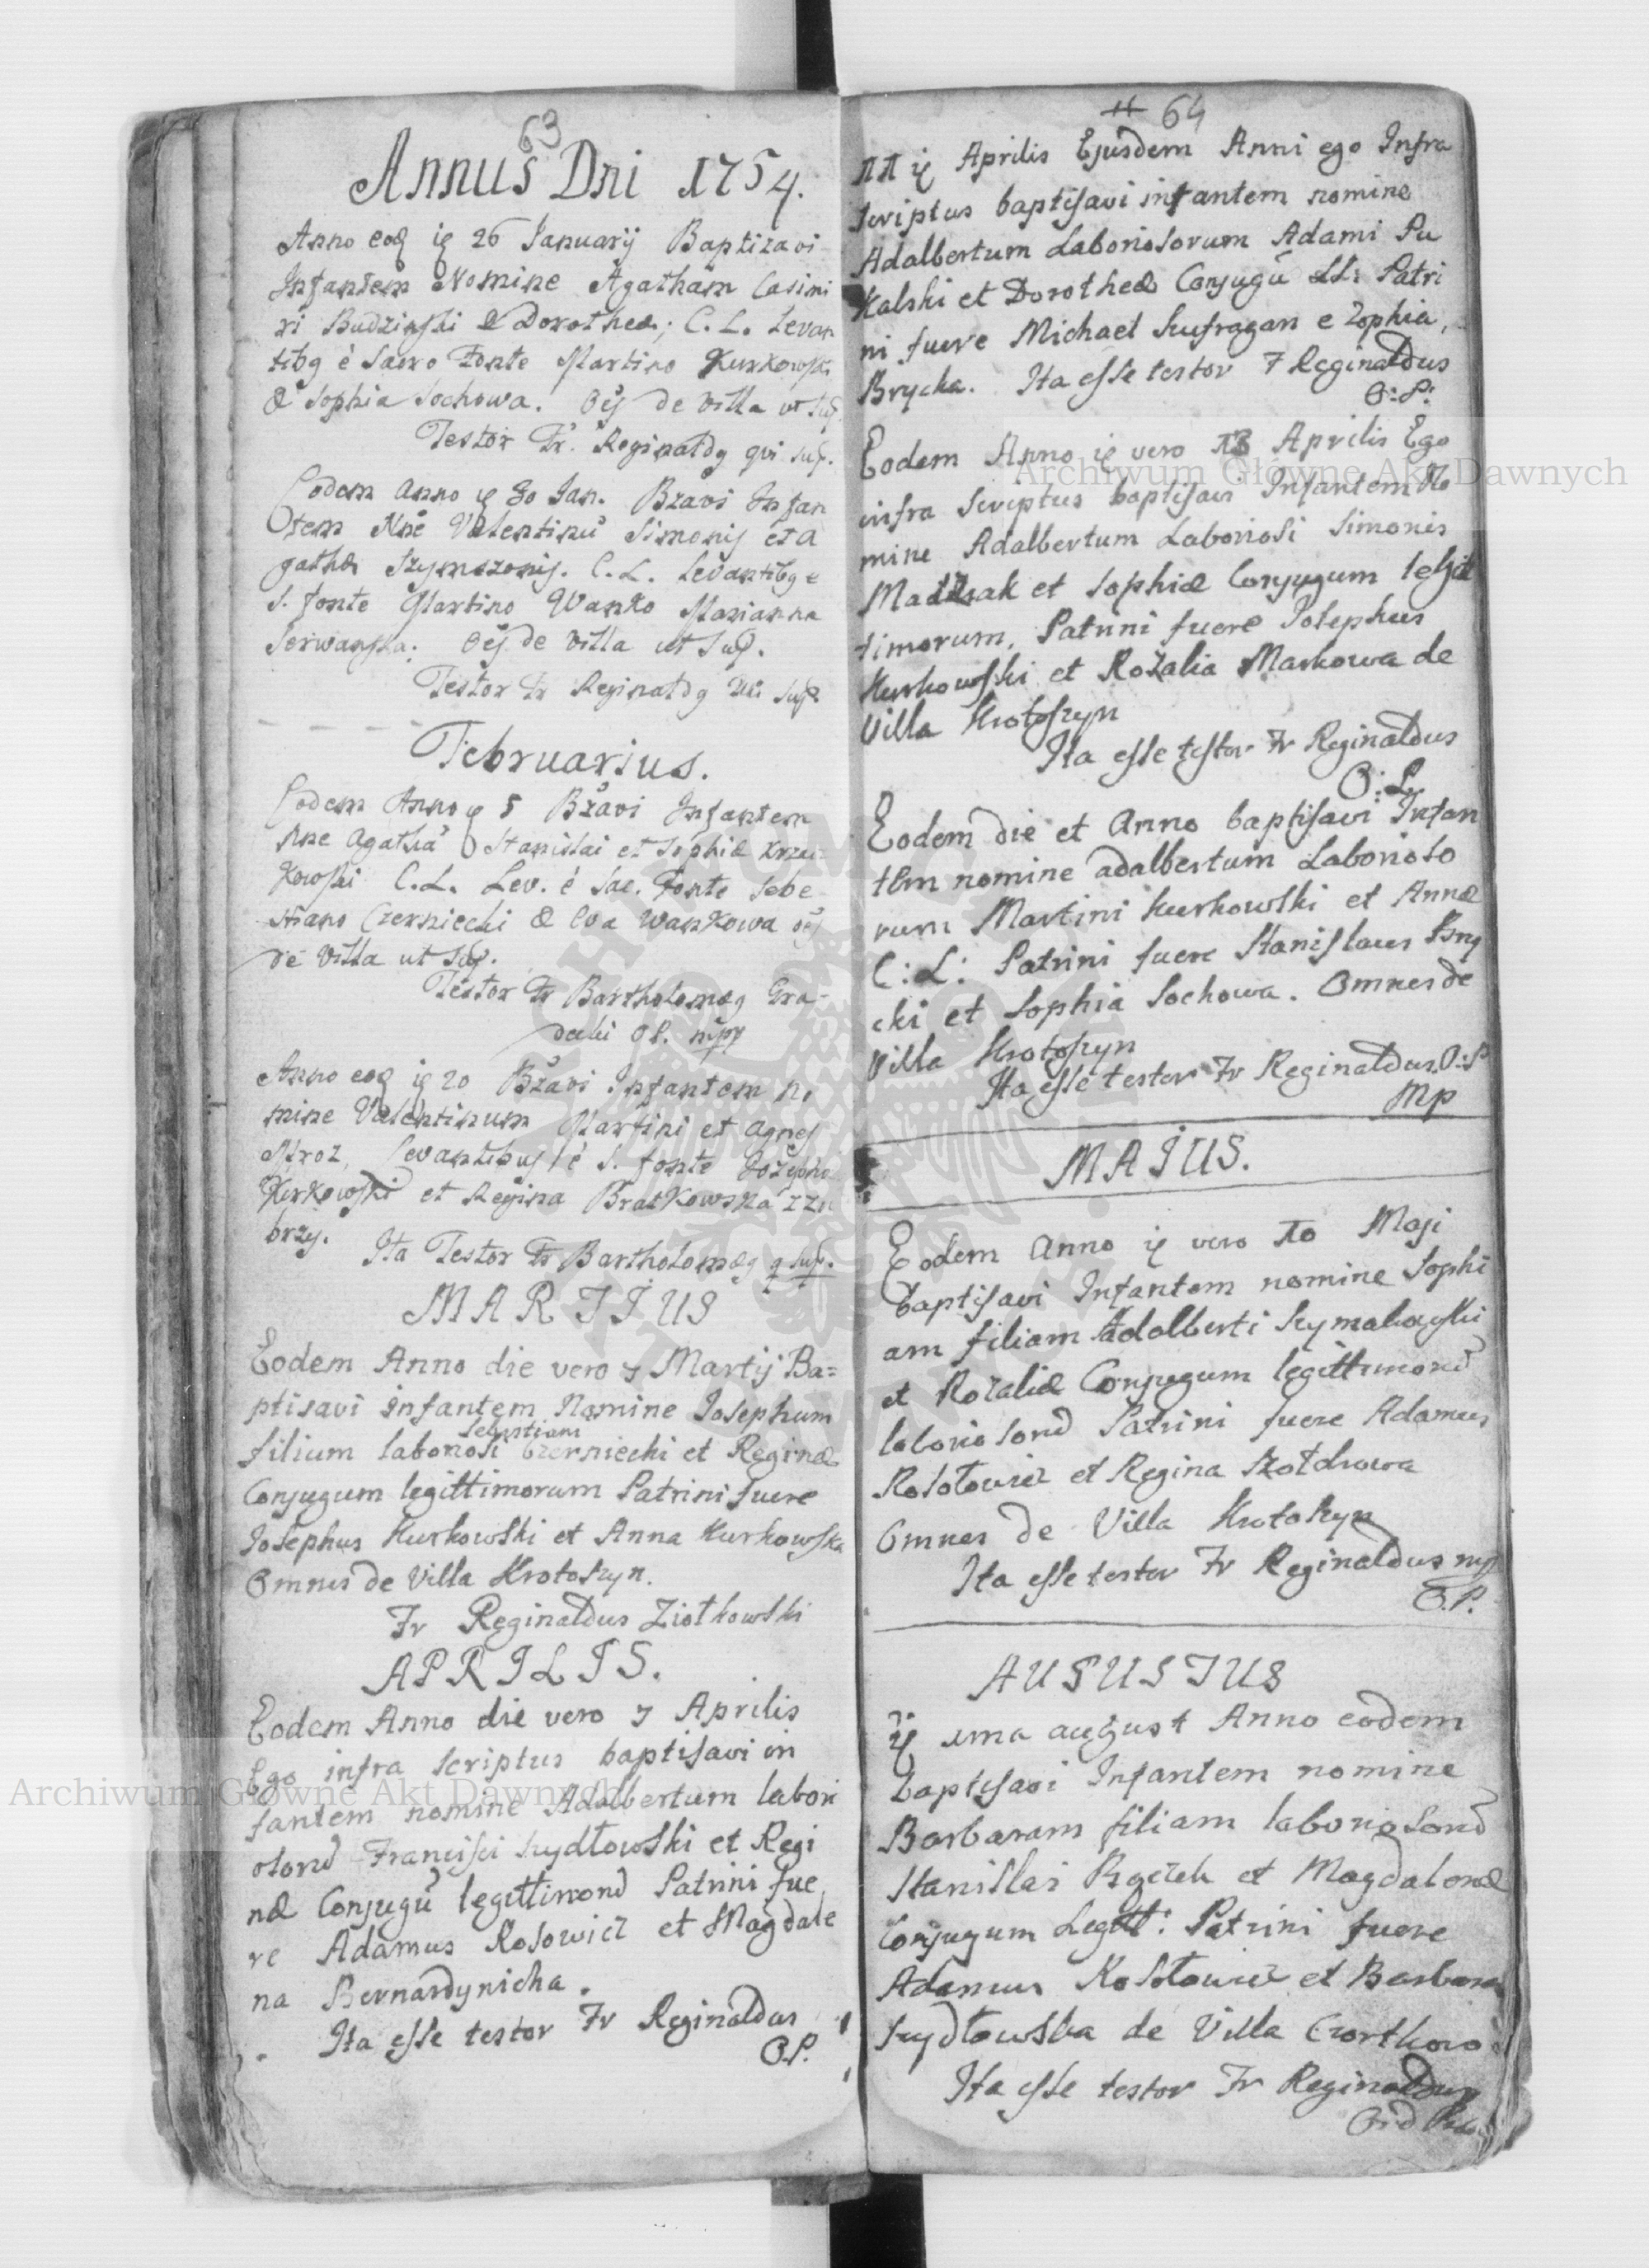 63
Annus Dni 1754.
Anno eod ię 26 Januarij Baptizavi
Infantem Nomine Agatham Casimi
ri Budzinski & Dorotheæ; C. L. Levan
tibg è Sacro Fonte Martino Kurkowski
& Sophia Sochowa. Oēs de Villa ut Sup.
Testor Fr. Reginaldg qui sup.
Eodem Anno ię 30 Jan. Bzavi Infan
tem Nne Valentinū Simonis et A
gathæ Szymszonis. C. L. Levantibg e
S. fonte Martino Wanko Marianna
Serwanska. Oēs de Villa ut Sup.
Testor Fr Reginaldg ut Sup
Februarius.
Eodem Anno ię 5 Bzavi Infantem
Nne Agathā Stanislai et Sophiæ Krzu=
kowski C. L. Lev. è Sac. Fonte Seba
stiano Czerniecki & Eva Wankowa oēs
de Villa ut Sup.
Testor Fr Bartholomæg Gra-
decki OP. mpp
Anno eod ię 20 Bzavi Infantem No
mine Valentinum Martini et Agnes
Stroz, Levantibus è S. fonte Josepho
Kurkowski et Regina Bratkowska z Zu
brzy.
Ita Testor Fr Bartholomæg q sup.
MARTIUS
Eodem Anno die vero 7 Martij Ba=
ptisavi infantem Nomine Josephum
Sebastiani
filium laboriosi Czerniecki et Reginæ
Conjugum legittimorum Patrini fuere
Josephus Kurkowski et Anna Kurkowska
Omnes de Villa Krotoszyn.
Fr Reginaldus Ziołkowski
APRILIS.
Eodem Anno die vero 7 Aprilis
Ego infra scriptus baptisavi in
fantem nomine Adalbertum labori
osorū Francisci Szydłowski et Regi
næ Conjugū legittimorū Patrini fue
re Adamus Kosowicz et Magdale
na Bernardynicha.
Ita esse testor Fr Reginaldus
O.P.
11 64
11 ię Aprilis Ejusdem Anni ego Infra
scriptus baptisavi infantem nomine
Adalbertum Laboriosorum Adami Pu
kalski et Dorotheæ Conjugū LL: Patri
ni fuere Michael Sufragan e Zophia
Brycka. Ita esse testor F Reginaldus
O:P:
Eodem Anno ię vero 13 Aprilis Ego
infra Scriptus baptisavi Infantem No
mine Adalbertum Laboriosi Simonis
Madzak et Sophiæ Conjugum legit
timorum, Patrini fuere Josephus
Kurkowski et Rozalia Markowa de
Villa Krotoszyn
Ita esse testor Fr Reginaldus
O:P.
Eodem die et Anno baptisavi Infan
tem nomine adalbertum Laborioso
rum Martini Kurkowski et Annæ
C: L: Patrini fuere Stanislaus Bry
cki et Sophia Sochowa. Omnes de
Villa Krotoszyn
Ita esse testor Fr Reginaldus O:P
Mp
MAIUS.
Eodem Anno ię vero 10 Maji
baptisavi Infantem nomine Sophi
am filiam Adalberti Szymaławski
et Rozaliæ Conjugum legittimorū
laboriosorū Patrini fuere Adamus
Kosołowicz et Regina Szołdrowa
Omnes de Villa Krotoszyn
Ita esse testor Fr Reginaldus mp
O.P.
AUGUSTUS
ię 1ma august Anno eodem
baptisavi Infantem nomine
Barbaram filiam laboriosorū
Stanislai Bączek et Magdalenæ
Conjugum Legitt: Patrini fuere
Adamus Kosołowicz et Barbara
Szydłowska de Villa Czortkow
Ita esse testor Fr Reginaldus
Ord
Archiwum Główne Akt Dawnych
Archiwum Główne Akt Dawnych